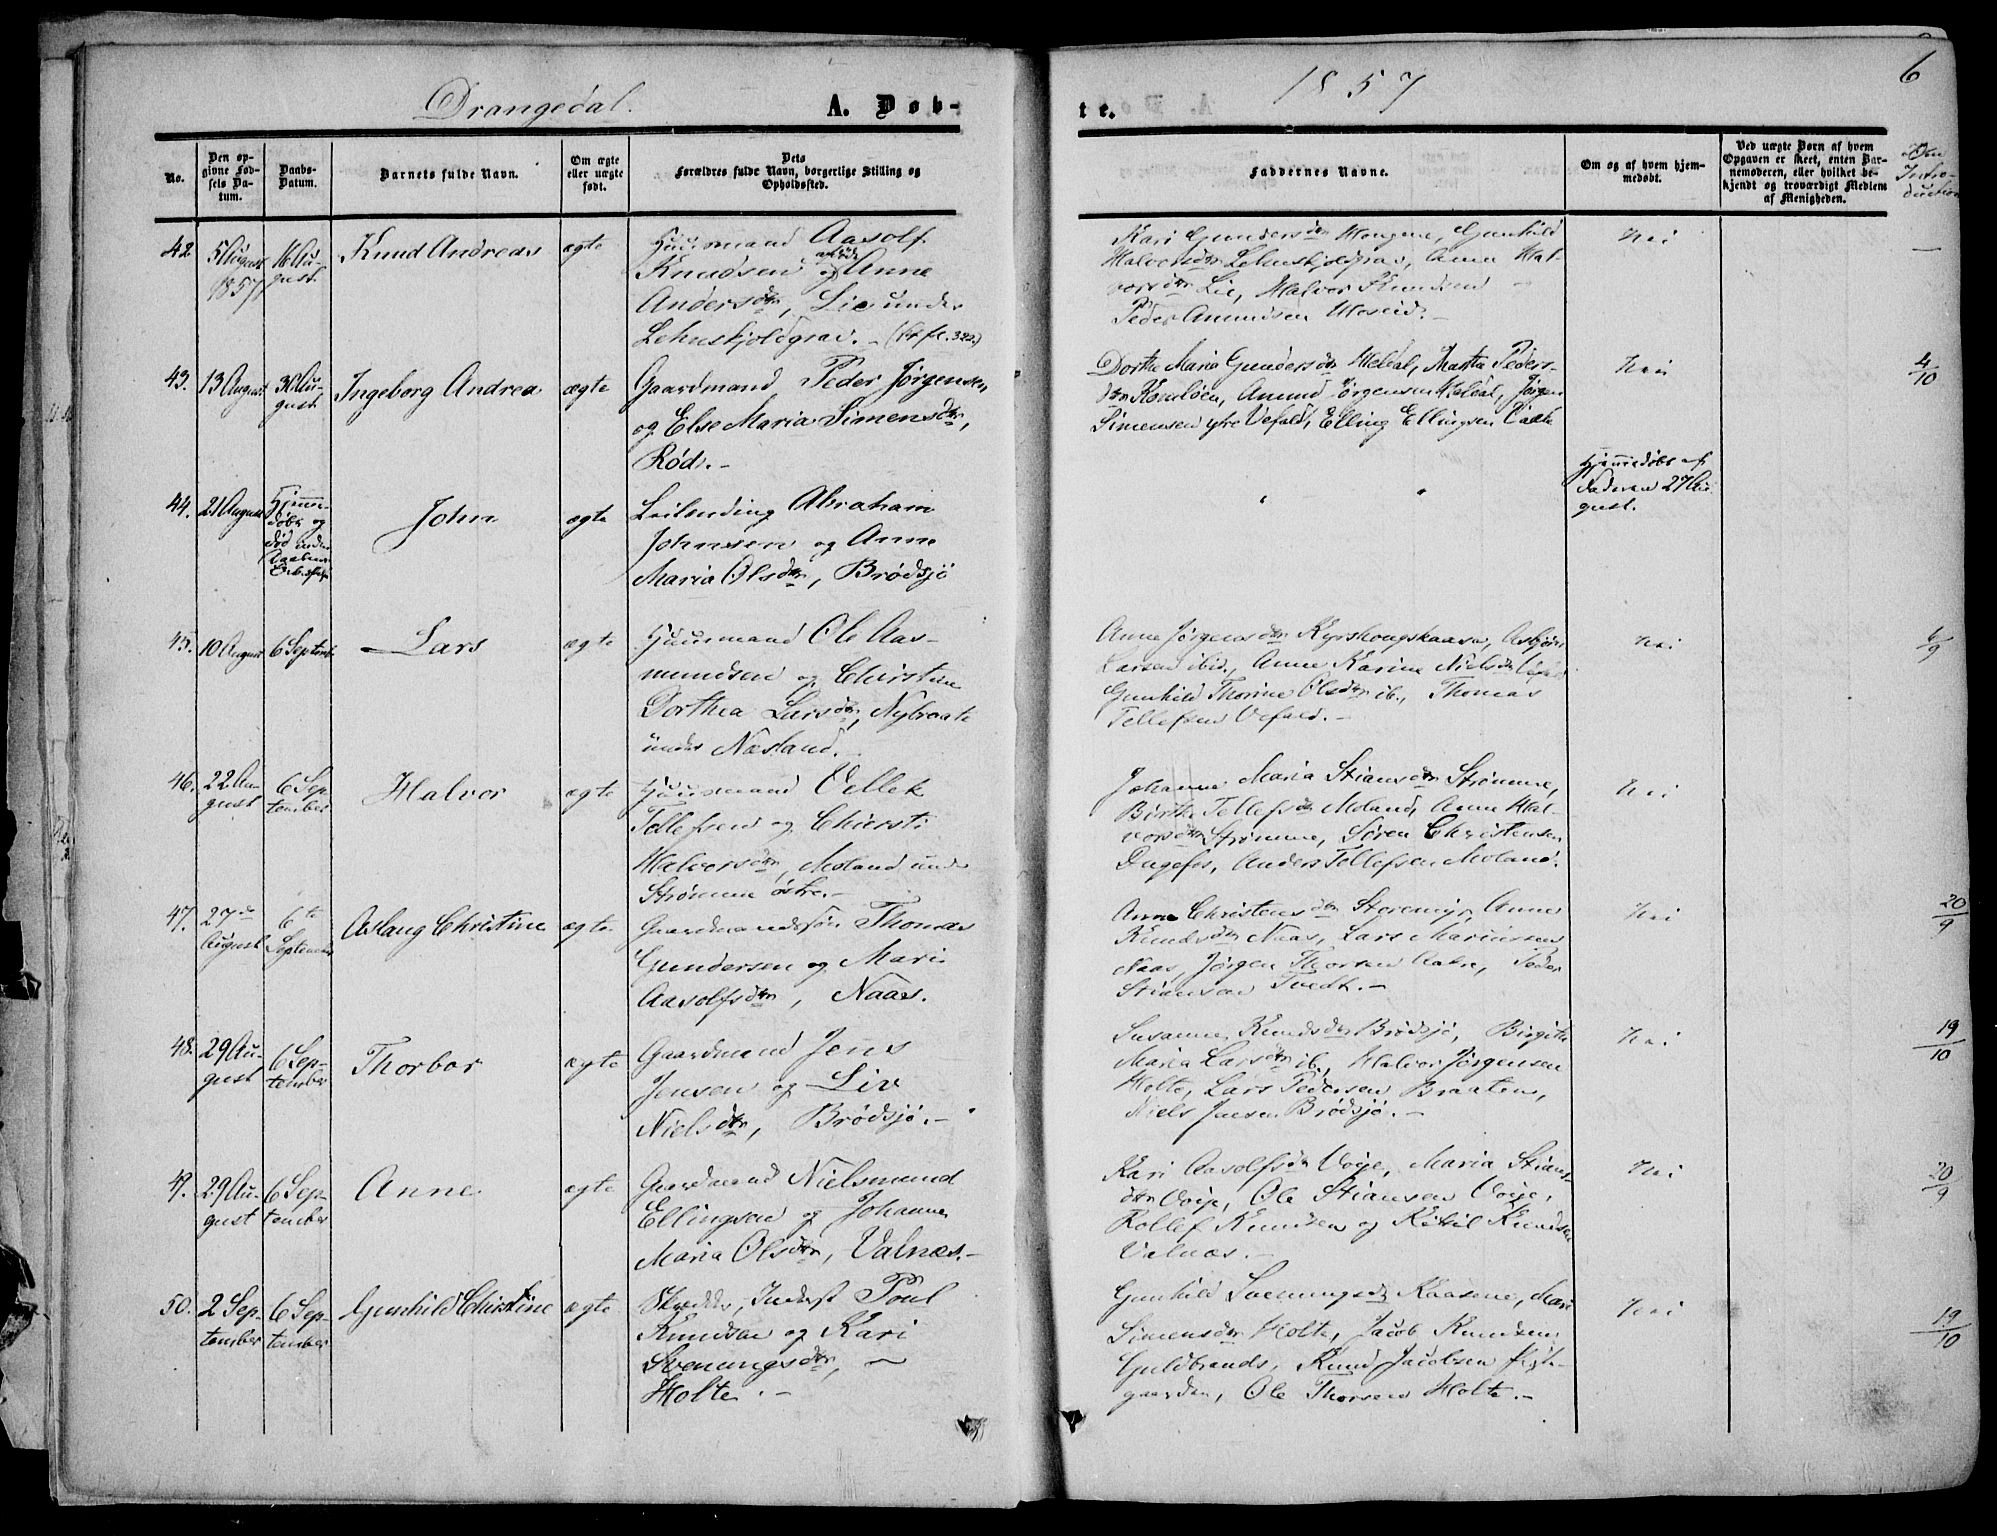 Drangedal.
A. Døb-
te.
1857
6
No.
Den op-
givne Fød-
sels Da-
tum.
Daabs-
Datum.
Barnets fulde Navn.
Om ægte
eller uægte
født.
Dets
Forældres fulde Navn, borgerlige Stilling og
Opholdssted.
Faddernes Navne.
Om og af hvem hjem-
medøbt.
Ved uægte Børn af hvem
Opgaven er skeet, enten Bar-
nemoderen, eller hvilket be-
kjendt og troværdigt Medlem
af Menigheden.
Om
Intro-
duction
42
5 August
1857
16 Au-
gust
Knud Andreas
ægte
Huusmand Aasolf
Knudsen og Anne
Andersdtr, Lie under
Lehnskjoldgrav. -
Kari Gundersdtr, Gunhild
Halvorsdtr Lehnskjoldgrav, Anne Hal-
vorsdtr Lie, Halvor Knudsen
Peder Amundsen
Nei
43.
13 August
30 Au-
gust
Ingeborg Andrea
ægte
Gaardmand Peder Jørgensen
og Else Maria Simensdtr,
Rød. -
Dorthe Maria Gundersdtr, Martha Peders-
dtr, Amund Jørgensen, Jørgen
Simensen ytre Vefald, Elling Ellingsen
Nei
4/10
44.
21 August
Hjemme-
døbt og
død
John
ægte
Leilending Abraham
Johnsen og Anne
Maria Olsdtr, Brødsjø
Hjemmedøbt af
Faderen 27 Au-
gust.
45.
10 August
6 Septemb.
Lars
ægte
Huusmand Ole Aas-
mundsen og Christine
Dorthea Larsdtr, Nybraate
under Næsland.
Anne Jørgensdtr, Asbjørn
Larsen ibid., Anne Karine Nielsdtr
Gunhild Thorine Olsdtr ib., Thomas
Tellefsen Vefald. -
Nei
6/9
46.
22 Au-
gust
6 Sep-
tember
Halvor
ægte
Huusmand Vellek
Tellefsen og Chirsti
Halvorsdtr, Moland under
Strømme østre. -
Johanne Maria Stiansdtr Strømme,
Birthe Tellefsdtr Moland, Anne Hal-
vorsdtr Strømme, Søren Christensen
Dagefos, Anders Tellefsen Moland.
Nei
47.
27de
August
6te
September
Aslaug Christine
ægte
Gaardmandssøn Thomas
Gundersen og Mari
Aasolfsdtr, Naas.
Anne Christensdtr Storemyr, Anne
Knudsdtr Naas, Lars Mariussen
Naas, Jørgen Thorsen, Peder
Stiansen Tvedt. -
Nei
20/9
48.
29 Au-
gust
6 Sep-
tember
Thorbor
ægte
Gaardmand Jens
Jensen og Liv
Nielsdtr, Brødsjø. -
Susanne Knudsdtr Brødsjø, Birgithe
Maria Larsdtr ib., Halvor Jørgensen
Holte, Lars Pedersen Braaten,
Niels Jensen Brødsjø. -
Nei
19/10
49.
29 Au-
gust
6 Sep-
tember
Anne
ægte
Gaardmand Nielsmund
Ellingsen og Johanne
Maria Olsdtr, Valnæs. -
Kari Aasolfsdtr Voje, Maria Stians-
dtr Voje, Ole Stiansen Voje,
Rollef Knudsen og Kittil Knudsen
Valnæs. -
Nei
20/9
50.
2 Sep-
tember
6 Sep-
tember
Gunhild Christine
ægte
Skrædder, Inderst Poul
Knudsen og Kari
Sveningsdtr,
Holte. -
Gunhild Sveningsdtr Kaasene, Mari
Simensdtr Holte, Jacob Knudsen
Guldbrands, Knud Jacobsen
Ole Thorsen Holte. -
Nei
19/10